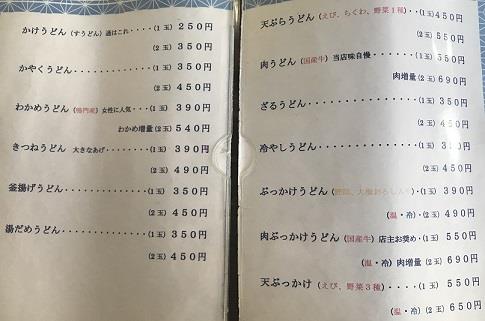 かけうどん（すうどん）通はこれ・・・・・(1玉) 250円
(2玉) 350円
かやくうどん・・・・・・・・・・・・(1玉) 350円
(2玉) 450円
わかめうどん（鳴門産）女性に人気・・・(1玉) 390円
わかめ増量(2玉) 540円
きつねうどん 大きなあげ・・・・・・・・(1玉) 390円
(2玉) 490円
釜揚げうどん・・・・・・・・・・・・(1玉) 350円
(2玉) 450円
湯だめうどん・・・・・・・・・・・・(1玉) 350円
(2玉) 450円
天ぷらうどん（えび、ちくわ、野菜1種）・・(1玉) 450円
(2玉) 550円
肉うどん（国産牛）当店味自慢・・・・・(1玉) 550円
肉増量(2玉) 690円
ざるうどん・・・・・・・・・・・・(1玉) 350円
(2玉) 450円
冷やしうどん・・・・・・・・・・・(1玉)
(2玉) 450円
ぶっかけうどん
(1玉) 390円
（温・冷）(2玉) 490円
肉ぶっかけうどん（国産牛）店主お奨め・(1玉) 550円
（温・冷）肉増量(2玉) 690円
天ぶっかけ（えび、野菜3種）・・・・(1玉) 550円
（温・冷）(2玉) 650円